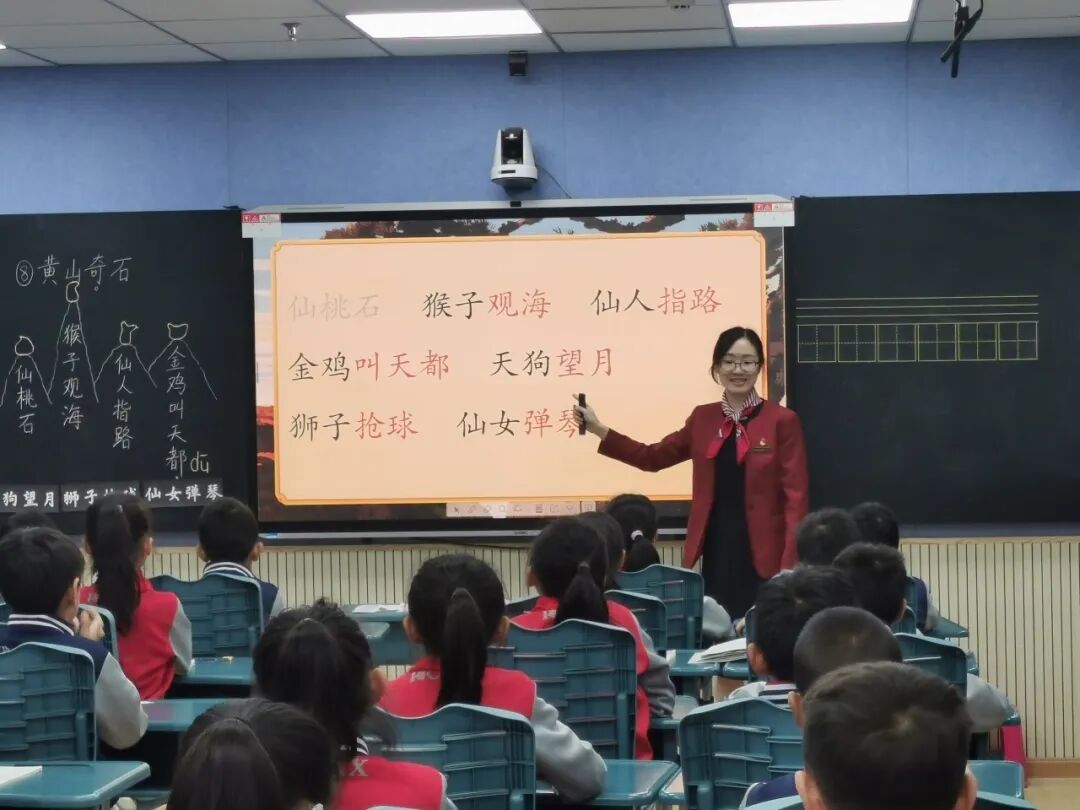 ⑧黄山奇石
仙桃石
猴子观海
仙人指路
金鸡叫天都 dū
狗望月
狮子
仙女弹琴
仙桃石 猴子观海 仙人指路
金鸡叫天都 天狗望月
狮子抢球 仙女弹琴